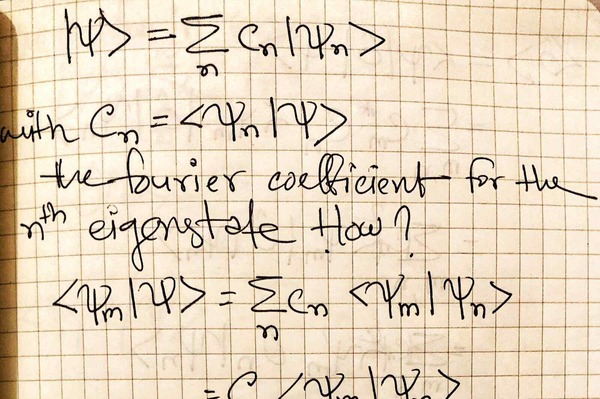 |Ψ> = Σ_n C_n |Ψ_n>
with C_n = <Ψ_n|Ψ>
the fourier coefficient for the
n^th eigenstate How?
<Ψ_m|Ψ> = Σ_n C_n <Ψ_m|Ψ_n>
= C <Ψ_m|Ψ_n>